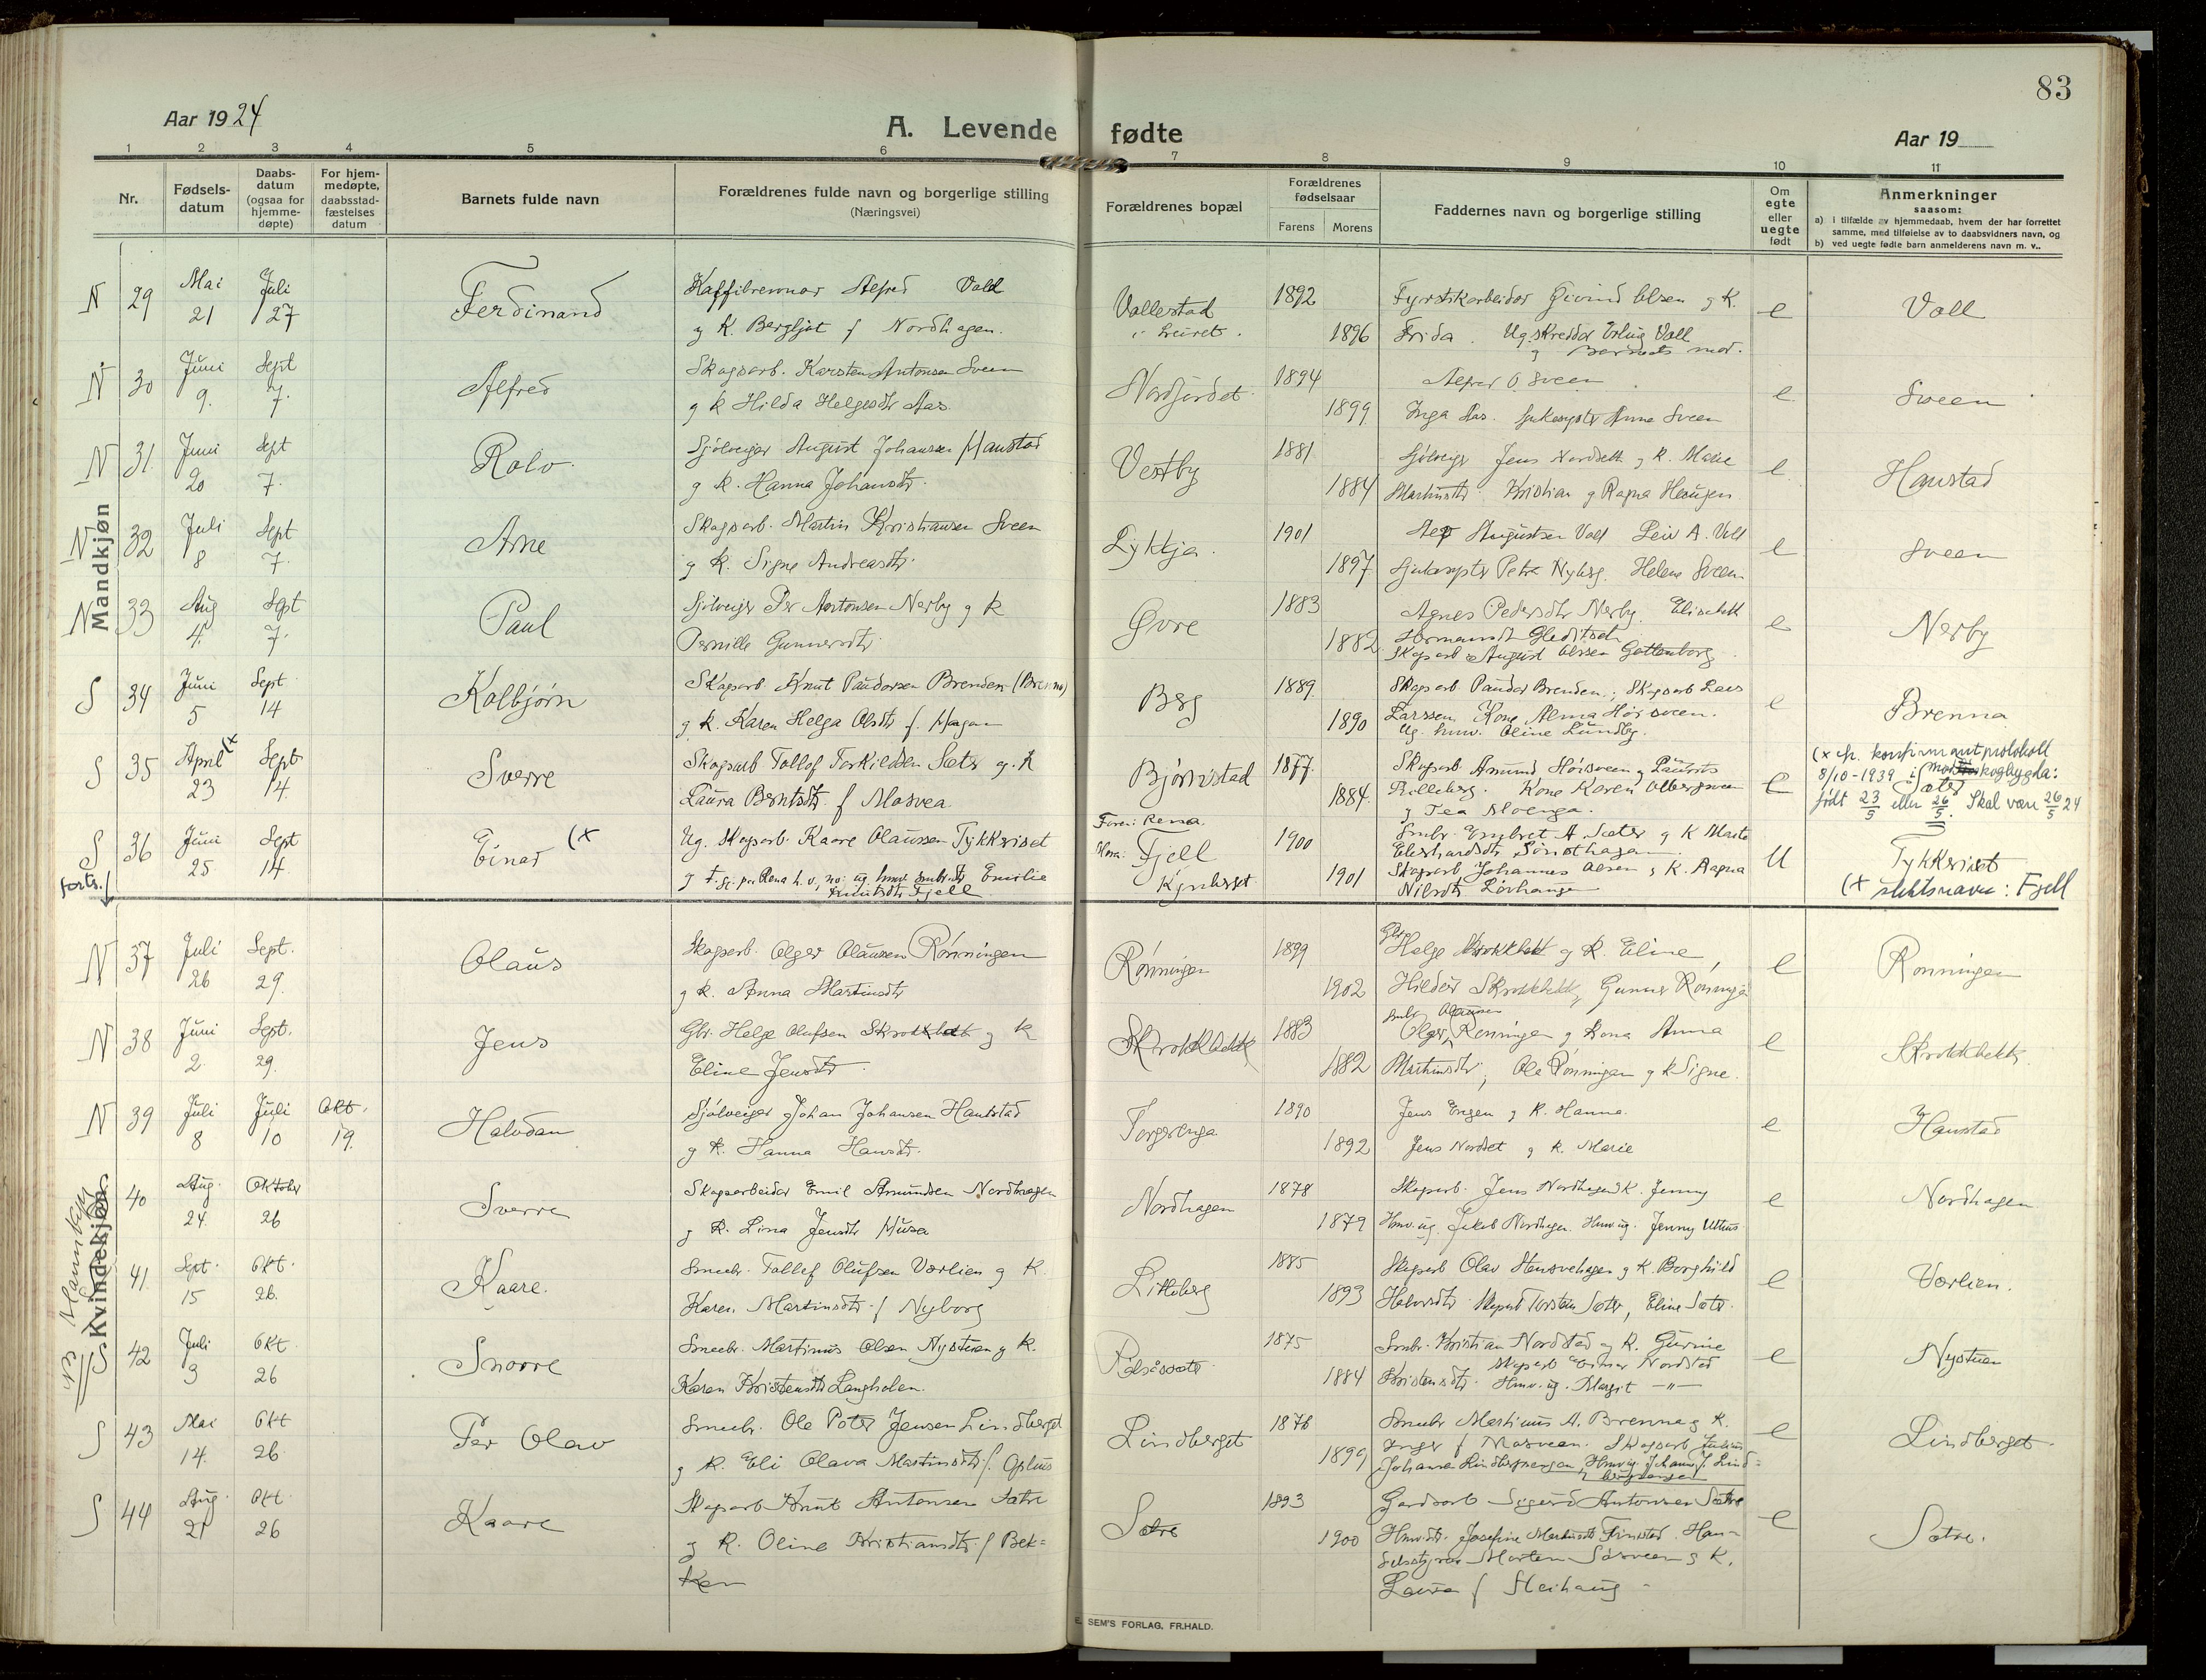 83
Aar 1924
A. Levende fødte
Aar 19
1 2 3 4 5 6 7 8 9 10 11
Nr.
Fødsels-
datum
Daabs-
datum
(ogsaa for
hjemme-
døpte)
For hjem-
medøpte,
daabsstad-
fæstelses
datum
Barnets fulde navn
Forældrenes fulde navn og borgerlige stilling
(Næringsvei)
Forældrenes bopæl
Forældrenes
fødselsaar
Farens Morens
Faddernes navn og borgerlige stilling
Om
egte
eller
uegte
født
Anmerkninger
saasom:
a) i tilfælde av hjemmedaab, hvem der har forrettet
samme, med tilføielse av to daabsvidners navn, og
b) ved uegte fødte barn anmelderens navn m. v..
Mandkjøn
N 29 Mai Juli Ferdinand Alfred Voll Vollestad 1892 e Voll
21 27 g K. Bergljot f Nordhagen. 1896 Frida. Ug. skredder Erling Voll
N 30 Juni Sept Alfred Skogsarb. Karsten Antonsen Sveen 1894 Alfred O. Sveen e Sveen
9. 7. g K Hilda Helgesdtr Aas. 1899 Inga Aas. Anne Sveen
N 31 Juni Sept Rolv Sjølveiger August Johansen Haustad Vestby 1881 Sjølveiger Jens Nordseth g K. Marie e Haustad
20 7. g K. Hanna Johansdtr. 1884 Martinsdtr. Kristian g Ragna Haugen
N 32 Juli Sept Arne Skogsarb. Martin Kristiansen Sveen Lykkja. 1901 Augustsen Voll Leiv A. Voll e Sveen
8 7. g K. Signe Andreasdtr. 1897 Petra Nyberg. Helene Sveen
N 33 Aug Sept Paul Sjølveiger Per Antonsen Nerby g K Øvre 1883 Agnes Pedersdtr Nerby. Elisabeth e Nerby
4. 7. Pernille Gunnersdtr. 1882 Hermansdtr Gleditsch
Skogsarb August Olssen Gottenborg
S 34 Juni Sept Kolbjørn Skogsarb. Knut Paudersen Brenden (Brenna) Berg 1889 Skogsarb. Pauder Brenden; Skogsarb Lars e Brenna
5 14 g K. Karen Helga Olsdtr f. Hagen 1890 Larssen. Kone Alma Høisveen.
Ug. hmv. Oline Lundby.
S 35 April (x Sept Sverre Skogsarb Tollof Torkildsen Sæter g. K Bjørnstad 1877. Skogsarb. Amund Høisveen g Laurits e (x efr. konfirmantprotokoll
23 14. Laura Berntsdtr. f Mosvea. 1884. Lilleberg. Kone Karen g Tea Moenga. 8/10-1939 i Nordskogbygda:
Sæter
født 23/5 eller 26/5. Skal være 26/5 24
S 36 Juni Sept Einar (x Ug. Skogsarb. Kaare Olaussen Tykkeriset Faren: Rena. 1900 Smbr. Engbret A. Sæter g K Marte U Tykkeriset
25 14. Emilie Knutsdtr Fjell Mora: Fjell 1901 Skogsarb Johannes Olsen g K. Ragna
Nilsdtr Løvhaugen (x slektsnavn: Fjell
forts.
N 37 Juli Sept. Olaus Skogsarb. Olger Olaussen Rønningen Rønningen 1899 Gbr. Helge Skrokkbekk g K. Eline, e Rønningen
26 29. g K. Anna Martinsdtr 1902 Hilder Skrokkbekk, Gunner Rønningen
N 38 Juni Sept. Jens Gbr. Helge Olufsen Skrokkbekk g K Skrokkbekk 1883 Smbr Olger Olaussen Rønningen g Kona Anna e Skrokkbekk.
2 29. Eline Jensdtr. 1882 Martinsdtr; Ole Rønningen g K Signe.
N 39 Juli Juli Okt. Halvdan Sjølveiger Johan Johansen Haustad Torgerenga 1890 Jens Engen g K. Hanna. e Haustad
8 10 19. g K. Hanna Hansdtr. 1892 Jens Nordset g K. Marie
NB Mannkjøn
Kvindekjøn.
40 Aug. Oktober Sverre Skogsarbeider Emil Amundsen Nordhagen Nordhagen 1878 Skogsarb. Jens Nordhagen g K. Jenny e Nordhagen
24. 26 g K. Lina Jensdtr Husa 1879 Hmv. ug. Jakob Nordhagen. Hmv ug. Jenny
41 Sept. Okt. Kaare. Smbr. Tollef Olufsen Værlien g K. Litleberg 1885 Skogsarb Olav g K. Borghild e Værlien.
15 26. Karen Martinsdtr. f Nyborg 1893 Halvorsdtr. Skogsarb Torsten Sæter, Eline Sæter.
S. 42 Juli Okt. Snorre Smbr. Martinus Olsen Nystuen g K. 1875 Smbr. Kristian Nordstad g K. Gurine e Nystuen
3 26 Karen Kristensdtr Langholen. 1884 Kristensdtr. Skogsarb Einar Nordstad Hmv. ug. Margit —"—
S 43 Mai Okt Per Olav Smbr. Ole Peter Jensen Lindberget Lindberget 1876 Smbr Martinus A. Brenna g K. e Lindberget.
14. 26. g K. Eli Olava Martinsdtr f. Oplus 1899 Inger f Mosveen. Skogsarb Julius
Johansen Lindbergsengen, Hmv ug. Lind=
bergsengen
S 44 Aug. Okt. Kaare Skogsarb Knut Antonsen Sætre Sætre 1893 Gardsarb Sigurd Antonsen Sætre e Sætre.
21 26 g K. Oline Kristiansdtr. f Bek= 1900 Hmv. Josefine Martinsdtr Finstad. Han=
ken delsstyrer Morten Sørveen g K.
Laura f Steihaug
E. SEM'S FORLAG, FR.HALD.